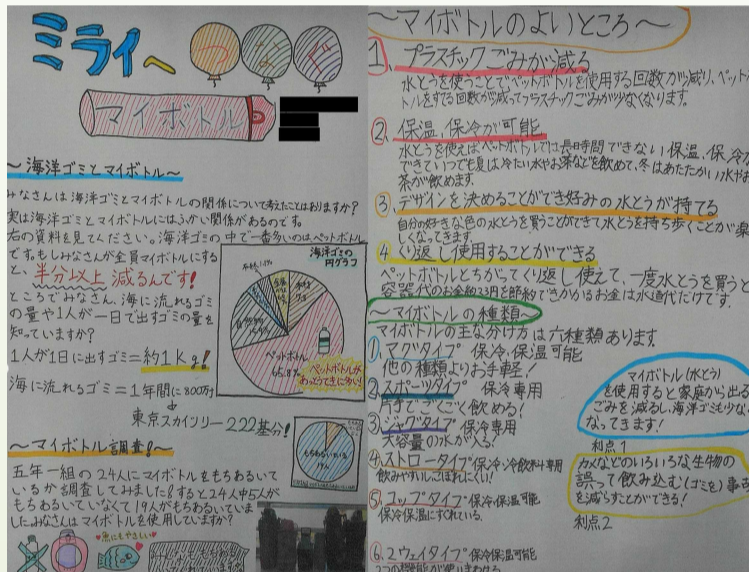 ミライへ
つなぐ
マイボトル
～海洋ゴミとマイボトル～
みなさんは海洋ゴミとマイボトルの関係について考えたことはありますか?
実は海洋ゴミとマイボトルにはふかい関係があるのです。
右の資料を見てください。海洋ゴミの中で一番多いのはペットボトル
です。もしみなさんが全員マイボトルにする
と、半分以上減るんです!
ところでみなさん、海に流れるゴミ
の量や1人が一日で出すゴミの量を
知っていますか?
1人が1日に出すゴミ=約1kg!
海に流れるゴミ=1年間に800万t
東京スカイツリー222基分!
海洋ゴミの
円グラフ
ペットボトル
65.8%
ペットボトルが
あっとうてきに多い!
～マイボトル調査!～
五年一組の24人にマイボトルをもちあるいて
いるか調査してみました!すると24人中5人が
もちあるいていなくて19人がもちあるいていま
した。みなさんはマイボトルを使用していますか?
もちあるいている
19人
魚にもやさしい
～マイボトルのよいところ～
1、プラスチックごみが減る
水とうを使うことでペットボトルを使用する回数が減り、ペットボ
トルをすてる回数が減ってプラスチックごみが少なくなります。
2、保温、保冷が可能
水とうを使えばペットボトルでは長時間できない保温、保冷が
できていつでも夏は冷たい水やお茶などを飲めて、冬はあたたかい水やお
茶が飲めます。
3、デザインを決めることができ好みの水とうが持てる
自分の好きな色の水とうを買うことができて水とうを持ち歩くことが楽
しくなってきます。
4、くり返し使用することができる
ペットボトルとちがってくり返し使えて、一度水とうを買うと
容器代のお金約23円を節約できかかるお金は水道代だけです。
～マイボトルの種類～
マイボトルの主な分け方は六種類あります。
①、マグタイプ 保冷、保温可能
他の種類よりお手軽!
②、スポーツタイプ 保冷専用
片手でごくごく飲める!
③、ジャグタイプ 保冷専用
大容量の水が入る!
④、ストロータイプ 保冷・冷飲料専用
飲みやすいしこぼれにくい!
⑤、コップタイプ 保冷・保温可能
保冷保温にすぐれている。
⑥、2ウェイタイプ 保冷保温可能
2つの機能が使いまわせる
マイボトル(水とう)
を使用すると家庭から出る
ごみを減らし、海洋ゴミも少なく
なってきます!
利点1
カメなどのいろいろな生物の
誤って飲み込む(ゴミを)事故
を減らすことができる!
利点2